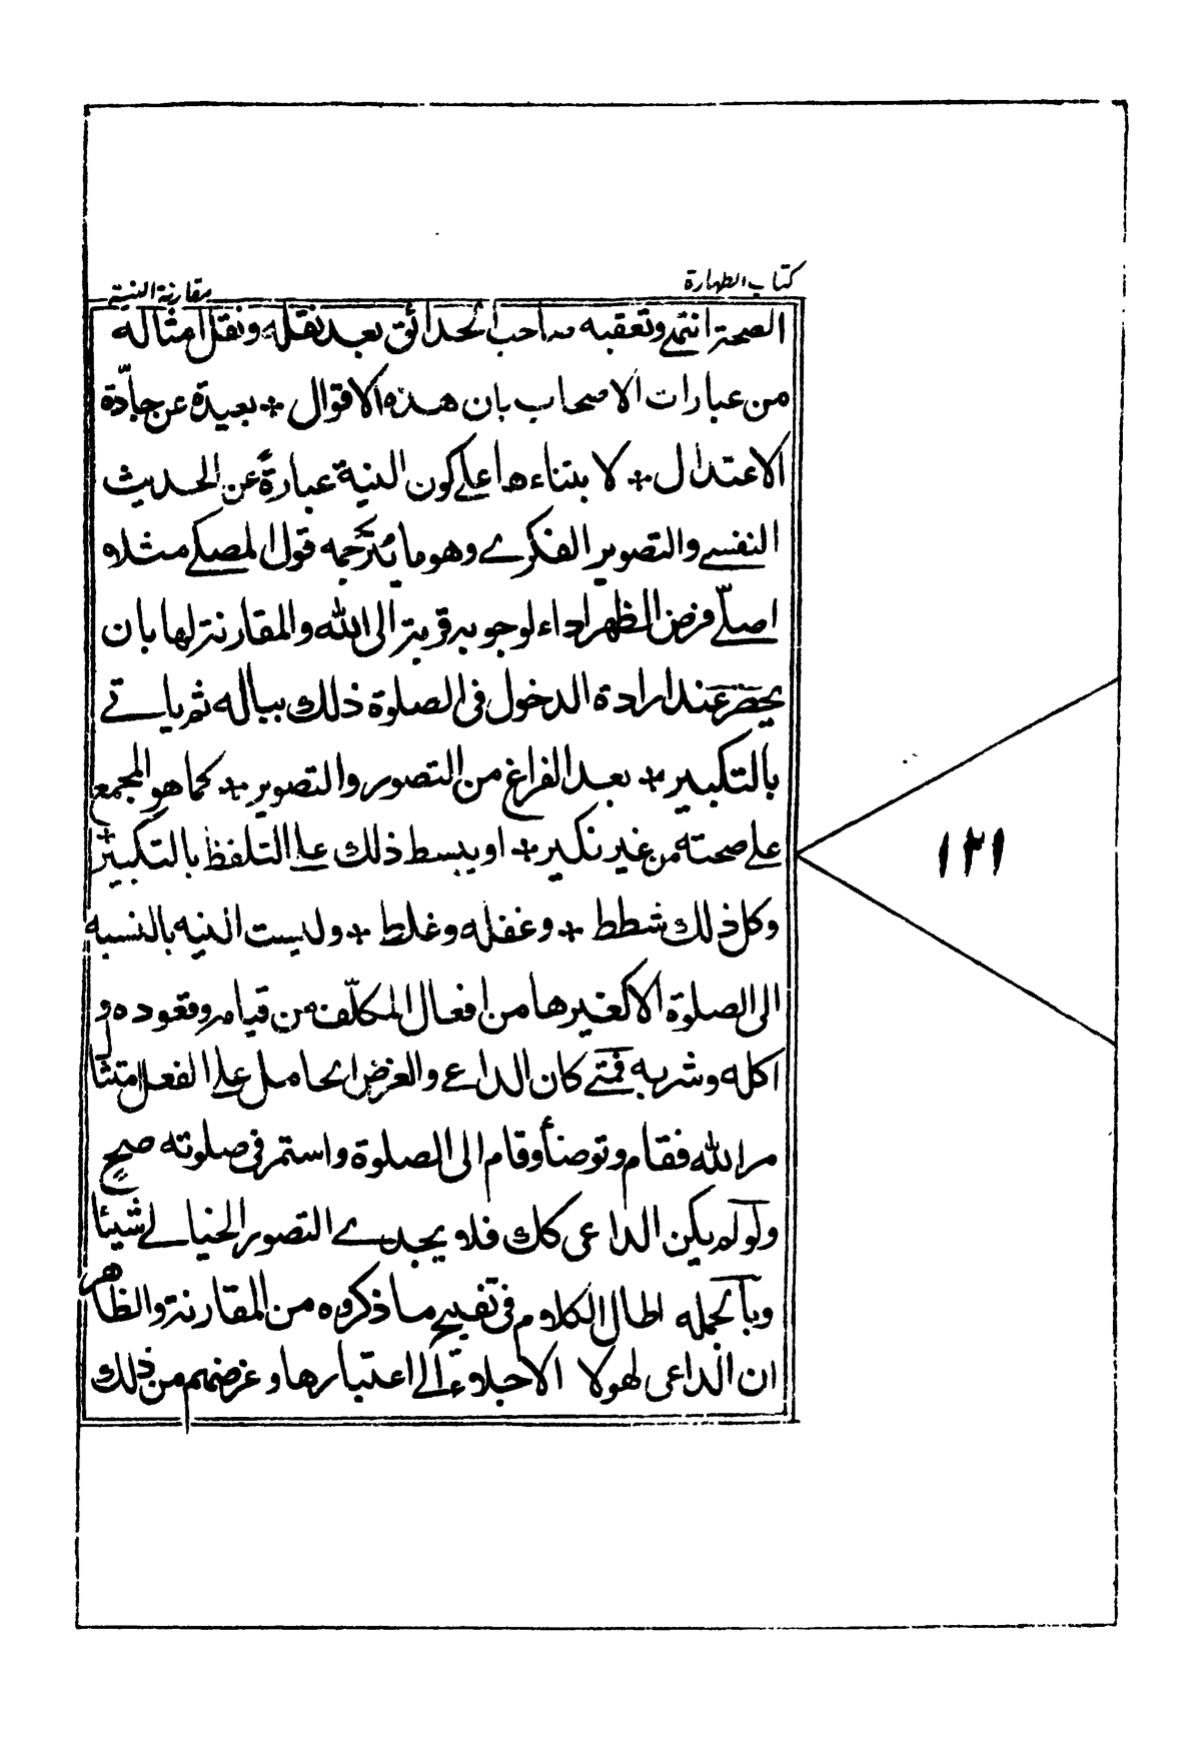 كتاب الطهارة
مقارنة النية
الصحة انتهى وتعقبه صاحب الحدائق بعد نقله ونقل امثاله
من عبارات الاصحاب بان هذه الاقوال + بعيدة عن جادّة
الاعتدال + لا بتناءها على كون النية عبارةً عن الحديث
النفسي والتصوير الفكري وهو ما يُترجمه قول المصلي مثلا
اصلّي فرض الظهر اداء لوجوبه قربة الى الله والمقارنة لها بان
يحضر عند ارادة الدخول فى الصلوة ذلك بباله ثم ياتي
بالتكبير + بعد الفراغ من التصور والتصوير + كما هو المجمع
على صحته من غير نكير + او يبسط ذلك على التلفظ بالتكبير +
وكل ذلك شطط + وغفله وغلط + وليست النيه بالنسبه
الى الصلوة الا كغيرها من افعال المكلّف من قيامه وقعوده و
اكله وشربه فمتى كان الداعي والغرض الحامل على الفعل امتثا
مر الله فقام وتوضأ وقام الى الصلوة واستمر فى صلوته صح
ولو لم يكن الداعى كك فلا يجدي التصور الخيالي شيئا
وبالجمله اطال الكلام فى تقبيح ما ذكروه من المقارنة والظاهر
ان الداعى لهولا الاجلاء الى اعتبارها وغرضهم من ذلك
١٢١